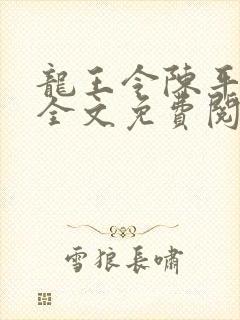 龍王令陳平
全文免費閱
雪狼長嘯